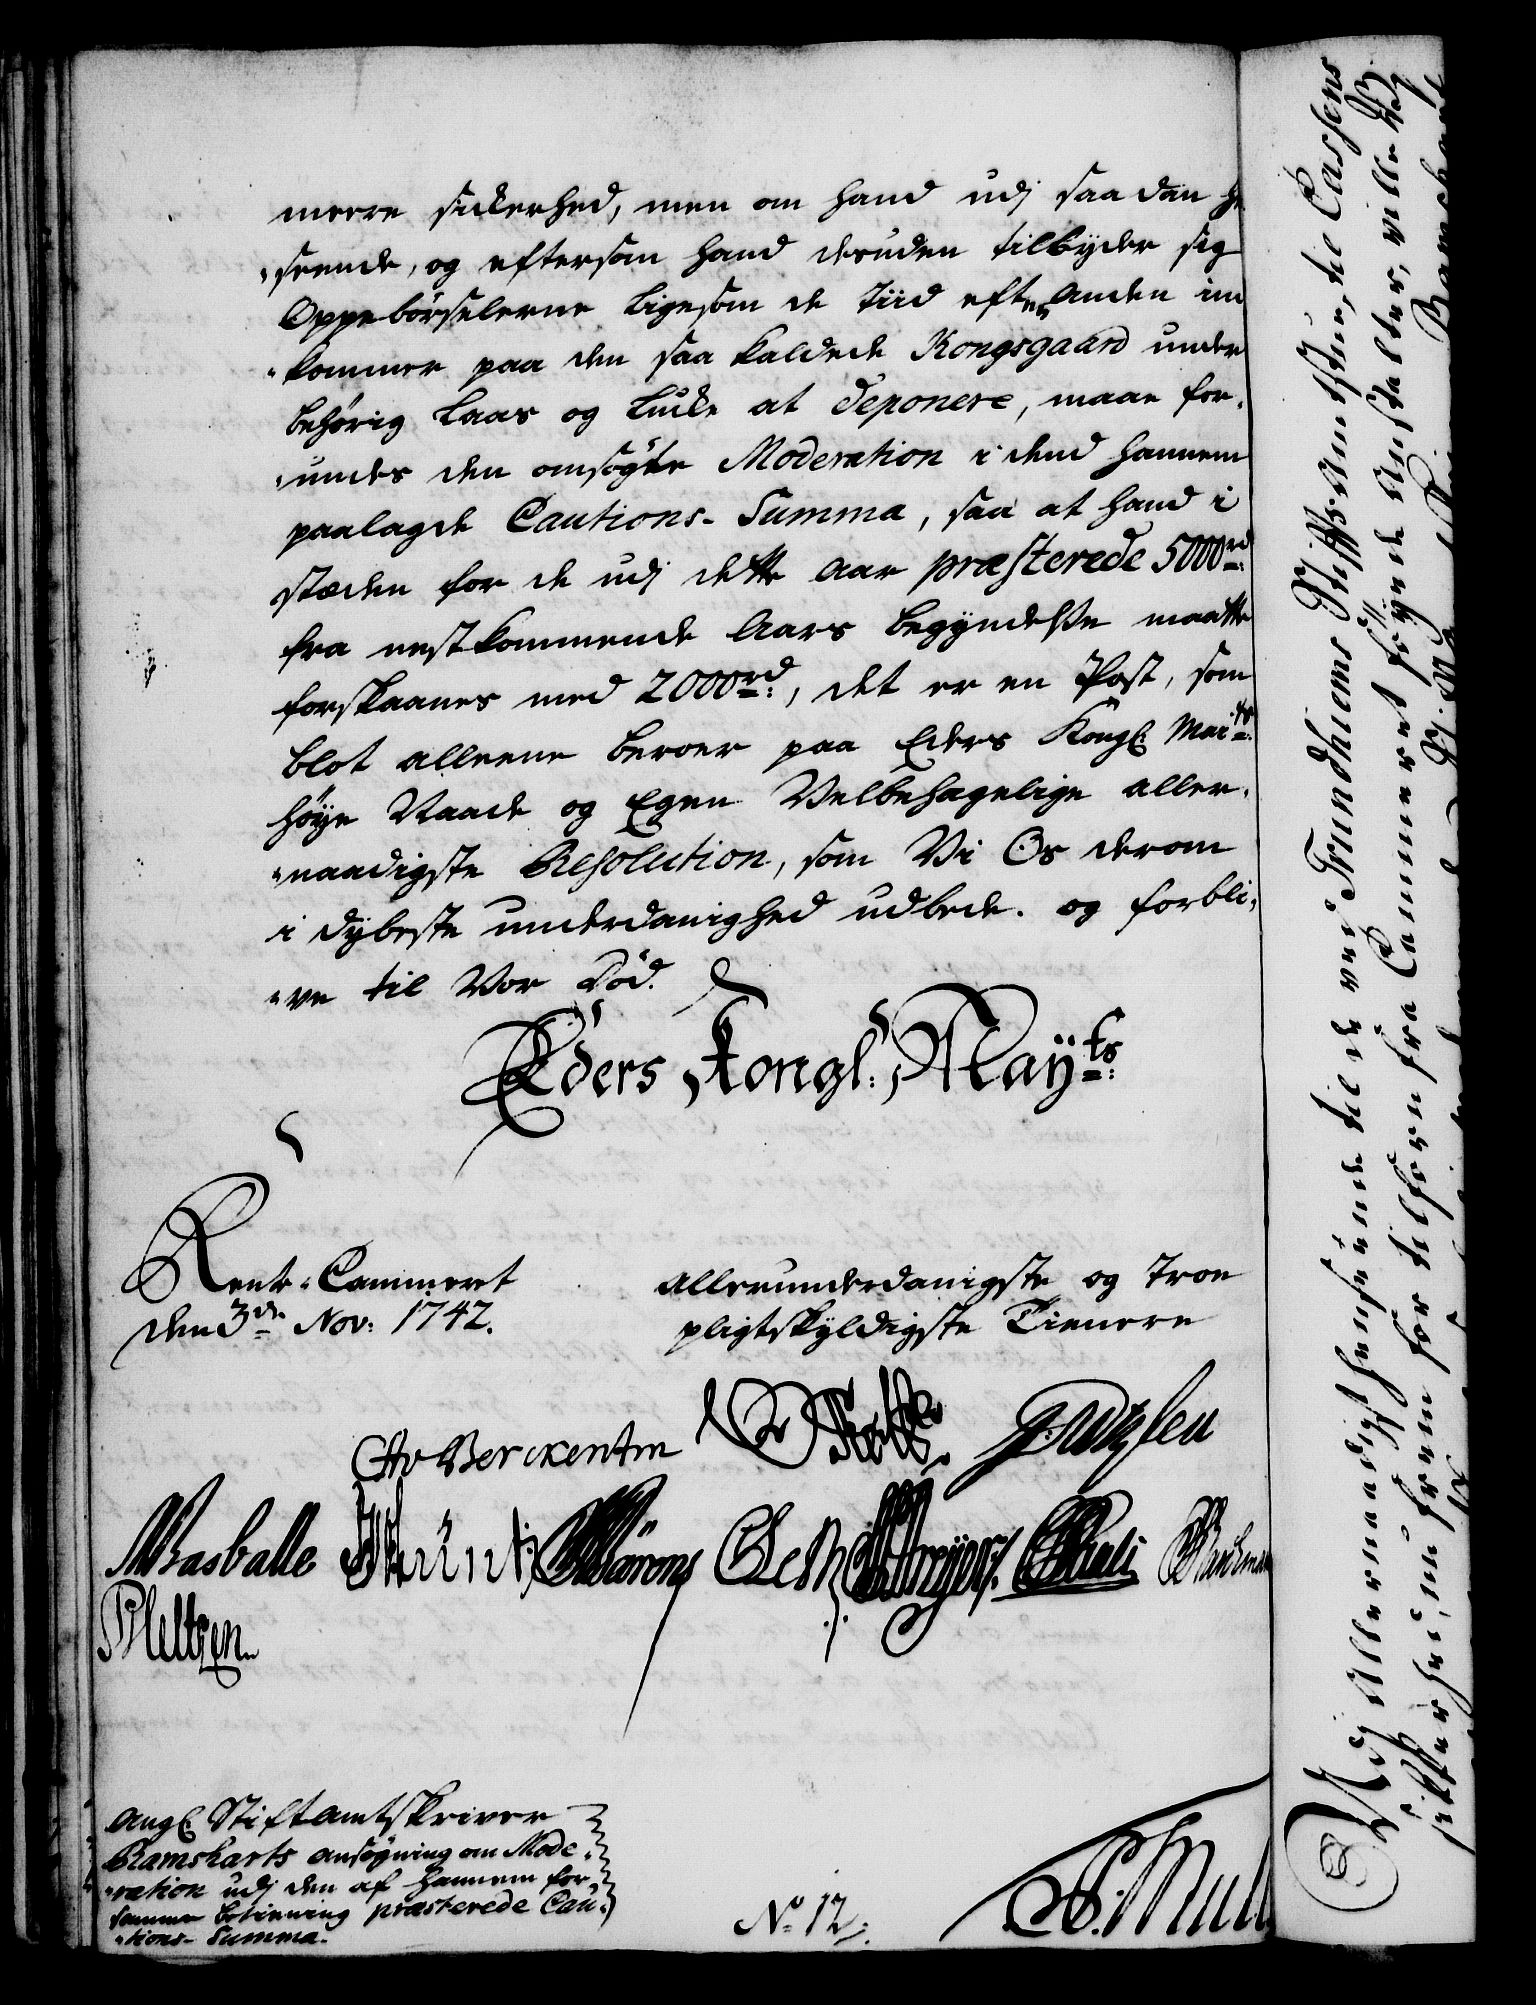 meere sickerhed, men om hand udj saadan he
„seende, og eftersom hand desuden tilbyder sig
Oppebörselerne ligesom de Tiid efter Anden ind
„kommer paa den saa kaldede Kongsgaard under
behörig Laas og Lucke at deponere, maae for„
„undes den ansögte Moderation i dend hannem
paalagde Cautions-Summa, saa at hand i
stæden for de udj dette Aar præsterede 5000rd:
fra nestkommende Aars begyndelse maatte
forskaanes med 2000rd:, det er en Post, som
blot alleene beroer paa Eders Kongl: Maits:
höye Naade og Egen Velbehagelige aller„
„naadigste Resolution, som Vi Os derom
i dybeste underdanighed udbede. og forbli„
„ve til Vor Död.
Eders Kongl: Mayts:
Rente-Cammeret
den 3de Nov: 1742.
Allerunderdanigste og Troe
pligtskyldigste Tienere
CAvBerckentin
Basballe
Angl: Stiftamtskriver
Ramsharts ansögning om Mode„
„ration udj den af hannem for
samme betiening præsterede Cau„
„tions-Summa.
No 12.
Vdj Allernaadigst henseende til de ved Trundhiems Stifts Amtstue, til Cassens
sickerhed, nu frem for tilforn fra Cammeret föyede Anstalter, ville Vj